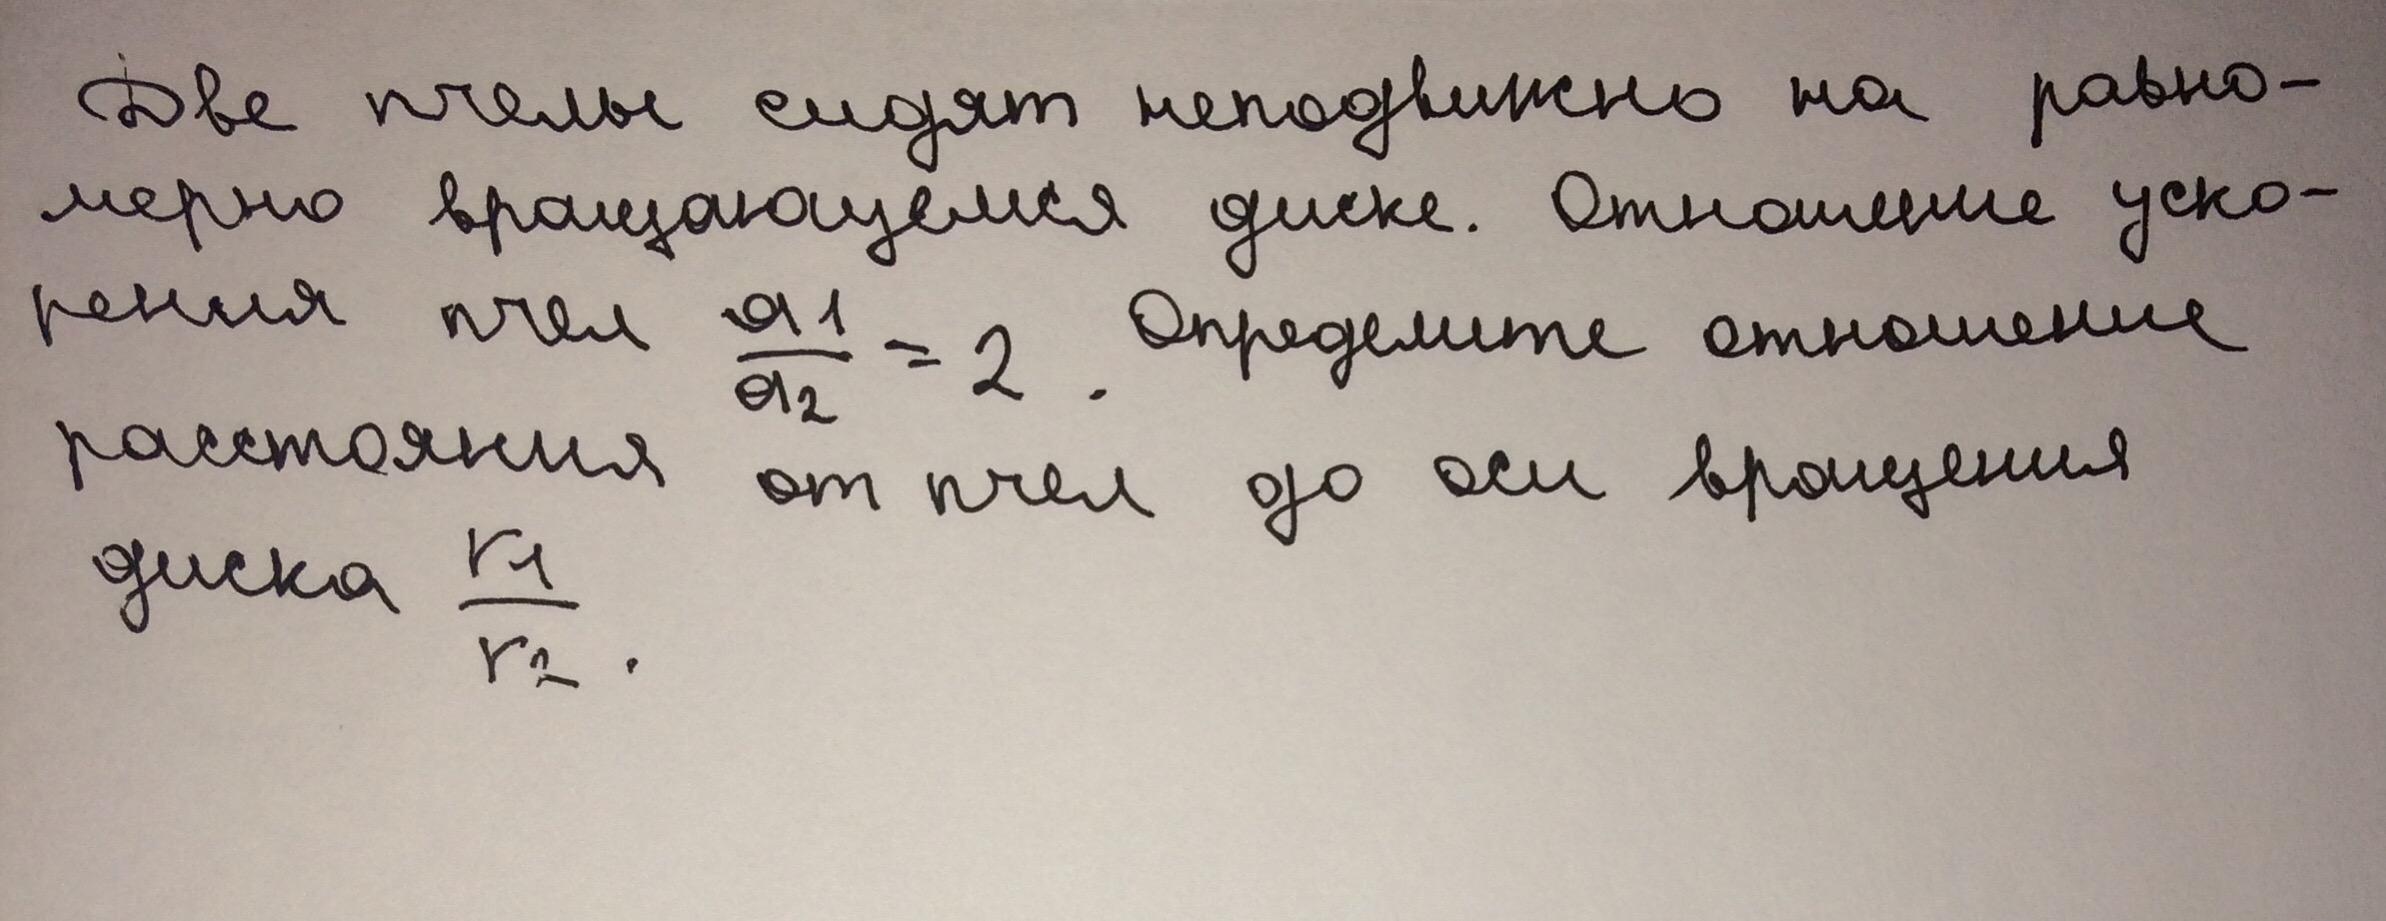 Две пчелы сидят неподвижно на равно-
мерно вращающемся диске. Отношение уско-
рения пчел a1/a2 = 2. Определите отношение
расстояния от пчел до оси вращения
диска r1/r2.